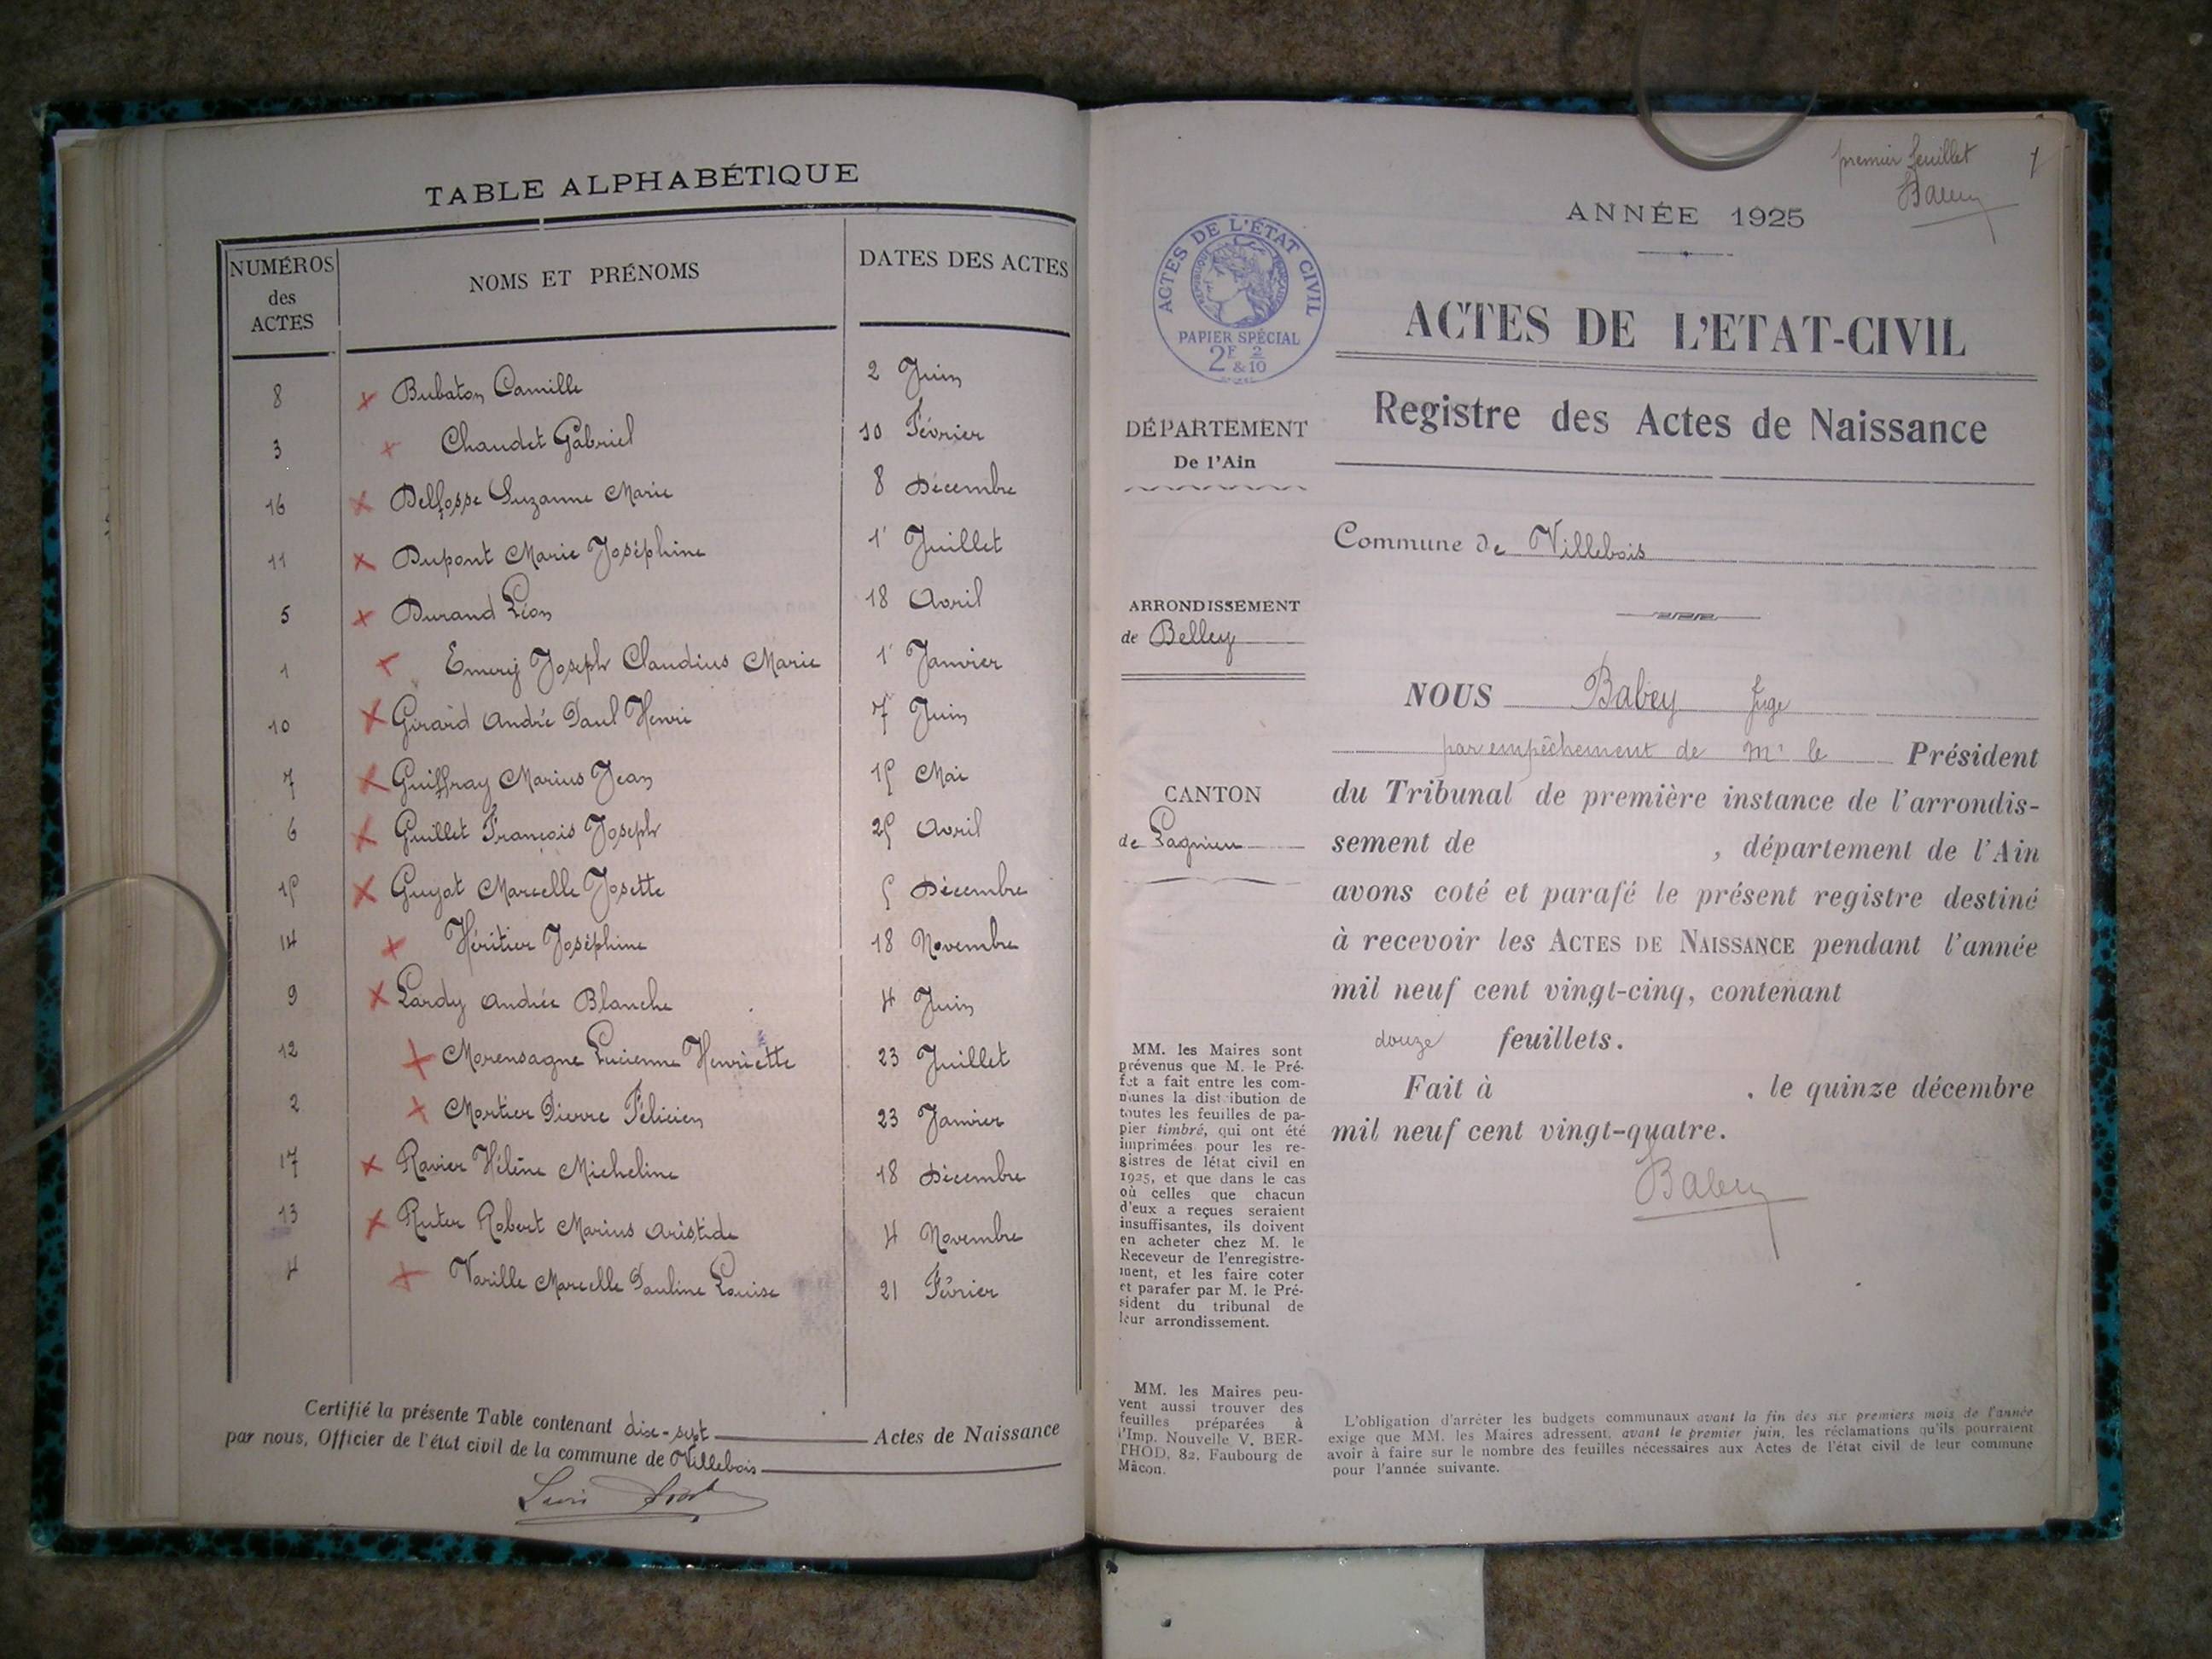 TABLE ALPHABÉTIQUE
NUMÉROS des ACTES
NOMS ET PRÉNOMS
DATES DES ACTES
8 Bubaton Camille 2 Juin
3 Chaudet Gabriel 10 Février
16 Delfosse Suzanne Marie 8 Décembre
11 Dupont Marie Joséphine 1' Juillet
5 Durand Léon 18 Avril
1 Emery Joseph Claudius Marie 1' Janvier
10 Girard André Paul Henri 7 Juin
7 Guiffray Marius Jean 15 Mai
6 Guillet François Joseph 25 Avril
15 Guyot Marcelle Josette 5 Décembre
14 Héritier Joséphine 18 Novembre
9 Lardy Andrée Blanche 4 Juin
12 Morensagne Lucienne Henriette 23 Juillet
2 Mortier Pierre Félicien 23 Janvier
17 Ravier Hélène Micheline 18 Décembre
13 Ruter Robert Marius Aristide 4 Novembre
4 Varille Marcelle Pauline Louise 21 Février
Certifié la présente Table contenant dix-sept Actes de Naissance
par nous, Officier de l'état civil de la commune de Villebois
premier feuillet 1
Babey
ANNÉE 1925
ACTES DE L'ÉTAT CIVIL
RÉPUBLIQUE FRANÇAISE
PAPIER SPÉCIAL
2F & 2/10
ACTES DE L'ETAT-CIVIL
Registre des Actes de Naissance
DÉPARTEMENT
De l'Ain
Commune de Villebois
ARRONDISSEMENT
de Belley
CANTON
de Lagnieu
NOUS Babey Juge
par empêchement de Mr le Président
du Tribunal de première instance de l'arrondis-
sement de , département de l'Ain
avons coté et parafé le présent registre destiné
à recevoir les ACTES DE NAISSANCE pendant l'année
mil neuf cent vingt-cinq, contenant
douze feuillets.
Fait à , le quinze décembre
mil neuf cent vingt-quatre.
Babey
MM. les Maires sont
prévenus que M. le Pré-
fet a fait entre les com-
munes la distribution de
toutes les feuilles de pa-
pier timbré, qui ont été
imprimées pour les re-
gistres de létat civil en
1925, et que dans le cas
où celles que chacun
d'eux a reçues seraient
insuffisantes, ils doivent
en acheter chez M. le
Receveur de l'enregistre-
ment, et les faire coter
et parafer par M. le Pré-
sident du tribunal de
leur arrondissement.
MM. les Maires peu-
vent aussi trouver des
feuilles préparées à
l'Imp. Nouvelle V. BER-
THOD, 82, Faubourg de
Mâcon.
L'obligation d'arrêter les budgets communaux avant la fin des six premiers mois de l'année
exige que MM. les Maires adressent, avant le premier juin, les réclamations qu'ils pourraient
avoir à faire sur le nombre des feuilles nécessaires aux Actes de l'état civil de leur commune
pour l'année suivante.